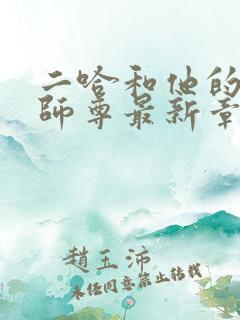 二哈和他的
師尊最新章
趙玉沛
未经同意禁止转载